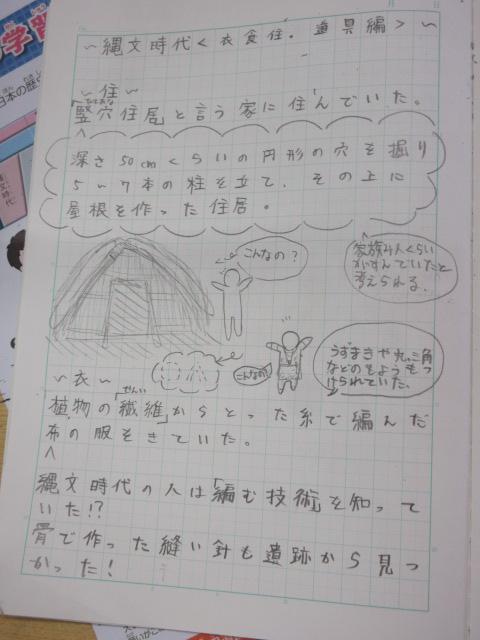 の学習
日本の歴
月 日
～縄文時代＜衣食住．道具編＞～
～住～
たてあな
「竪穴住居」と言う家に住んでいた。
深さ50cmくらいの円形の穴を掘り
5～7本の柱を立て、その上に
屋根を作った住居。
家族4人くらい
がすんでいたと
考えられる．
こんなの？
うずまきや丸、三角
などのもようもつ
けられていた。
こんなの？
～衣～
せんい
植物の「繊維」からとった糸で編んだ
布の服をきていた。
縄文時代の人は「編む技術」を知って
いた!?
骨で作った縫い針も遺跡から見つ
かった！